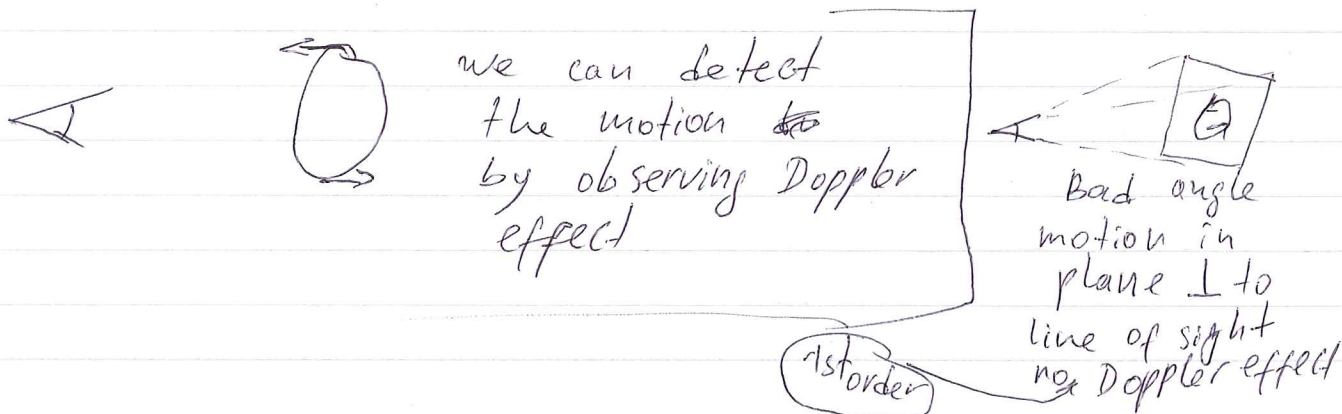 we can detect
the motion
by observing Doppler
effect
Bad angle
motion in
plane ⊥ to
line of sight
no Doppler effect
1st order